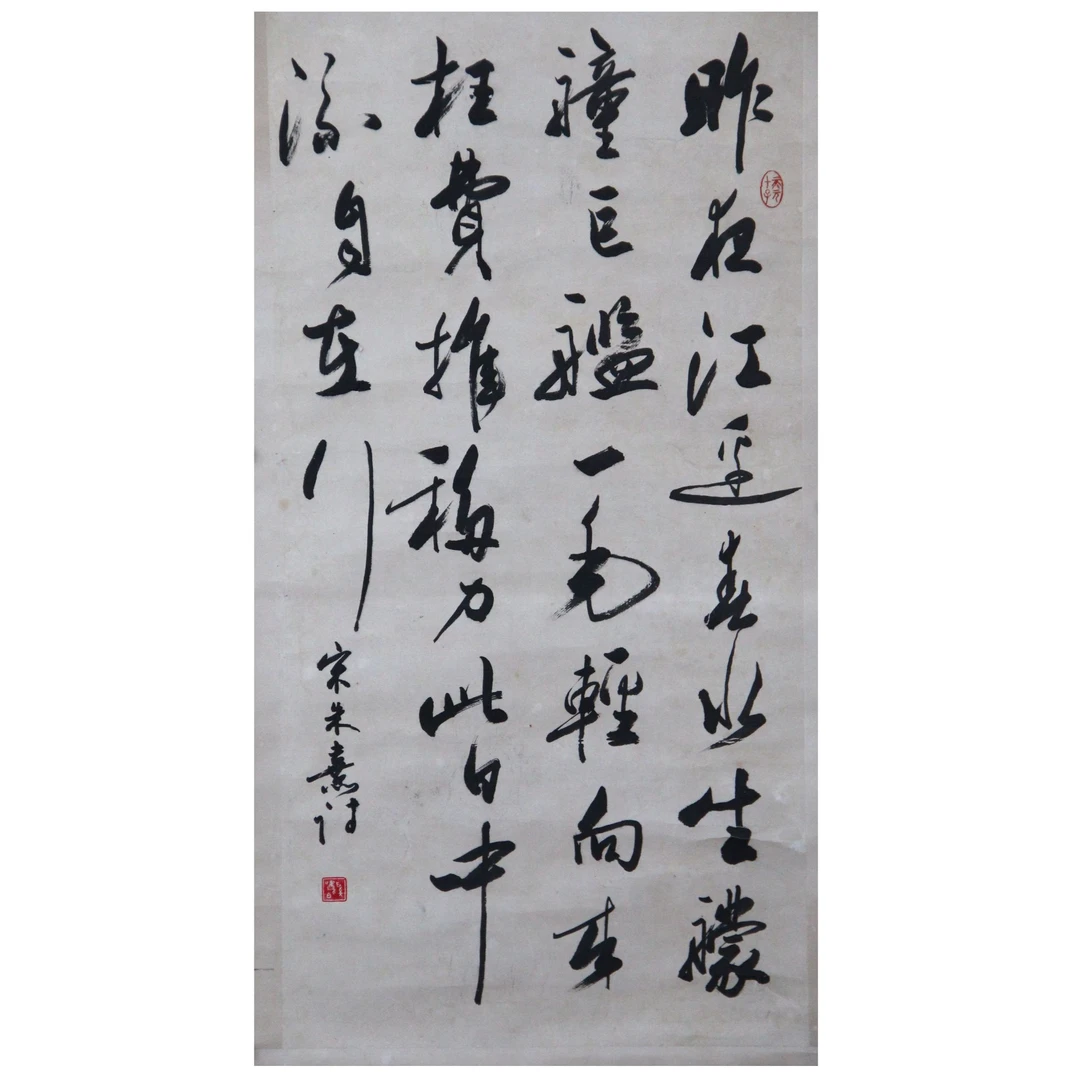 昨夜江邊春水生艨
艟巨艦一毛輕向來
枉費推移力此日中
流自在行
宋朱熹詩